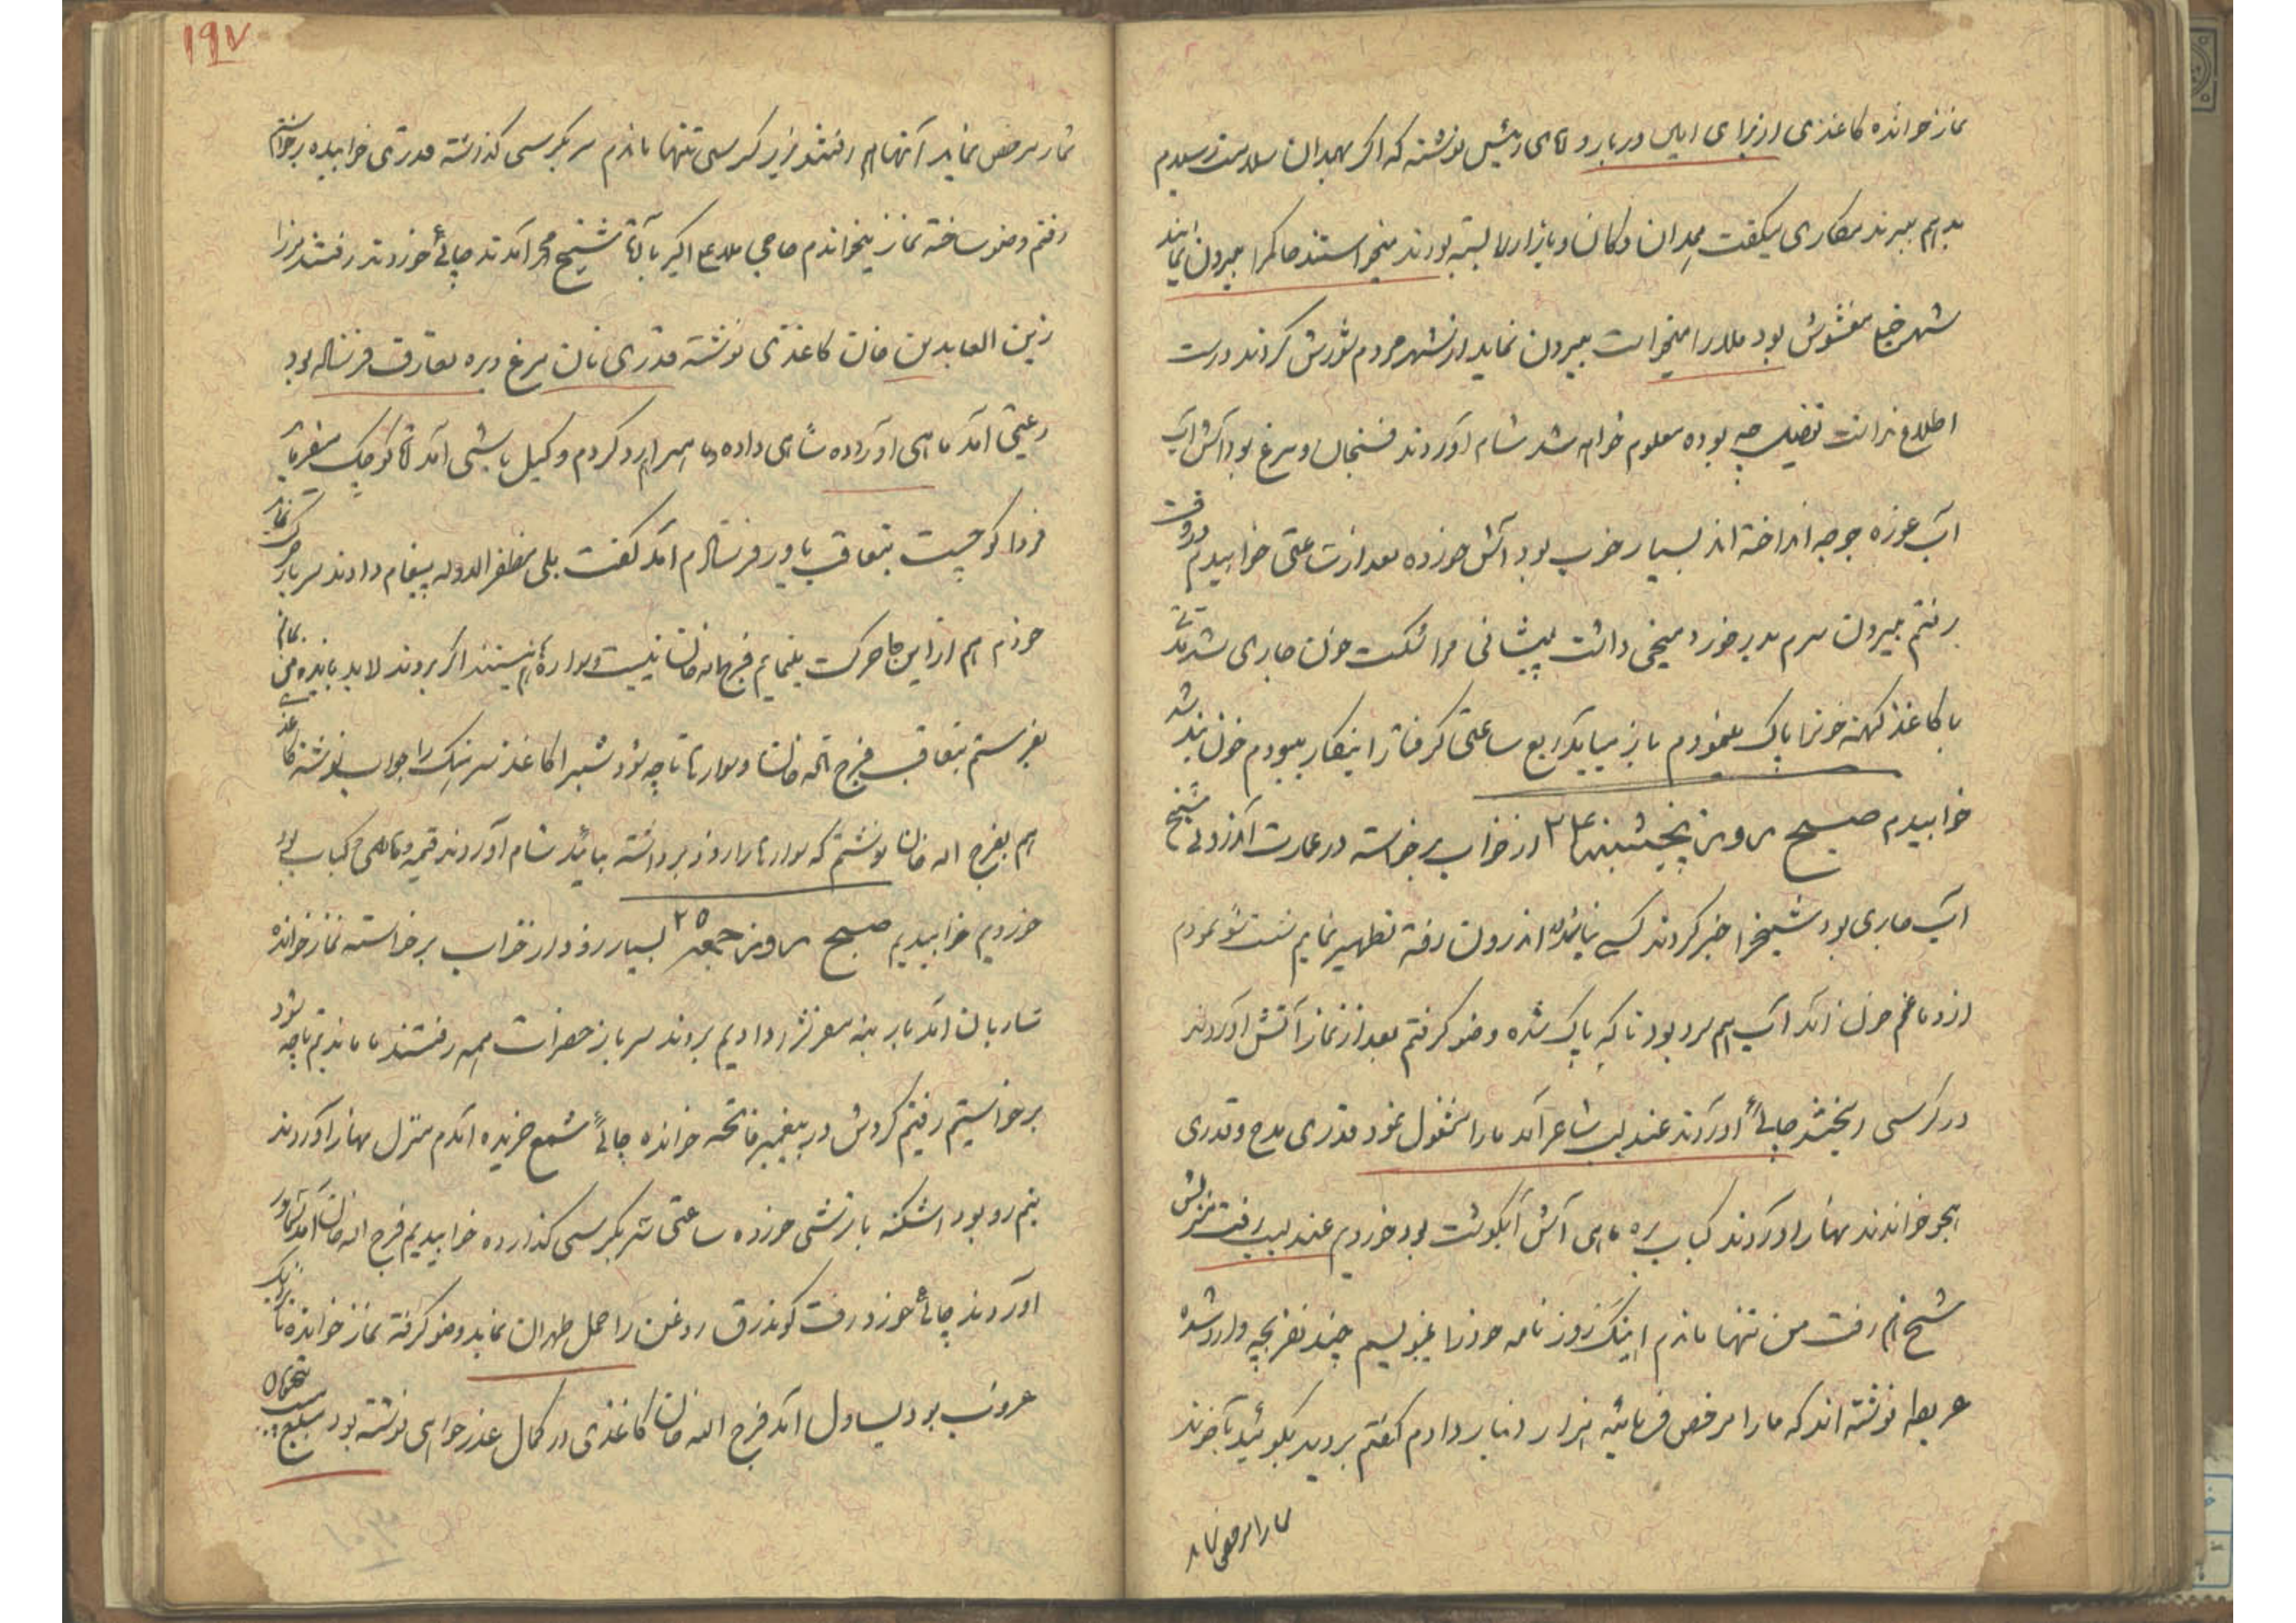 نماز خوانده کاغذی از برای ایل دربار و آقای رئیس نوشته که اگر بهمدان سلامت رسیدم
بدهم ببرند مکاری میگفت همدان دکان و بازار را بسته بودند میخواستند حاکم را بیرون نمایند
شهر خیلی مغشوش بود ملا را میخواست بیرون نماید از شهر مردم شورش کردند درست
اطلاع نداشت تفصیل چه بوده معلوم خواهد شد شام آوردند فسنجان و مرغ بود آش آب
آب غوره جوجه انداخته اند بسیار خوب بود آش خورده بعد از ساعتی خوابیدم
رفتم بیرون سرم بدر خورد میخی داشت پیشانی مرا شکست خون جاری شد
با کاغذ کهنه خونرا پاک مینمودم باز میاید ربع ساعتی گرفتار اینکار بودم خون بند شد
خوابیدم صبح روز پنجشنبه ۲۴ از خواب برخاسته در عمارت شیخ
آب جاری بود شیخ را خبر کردند کسی نیاید اندرون رفته تطهیر نمایم شست شو نمودم
از دماغم خون آمد آب هم سرد بود تا که پاک شده وضو گرفتم بعد از نماز آتش آوردند
در کرسی ریختند چائی آوردند عندلیب شاعر آمد ما را مشغول نمود قدری مدح و قدری
هجو خواندند نهار آوردند کباب بره ماهی آش آبگوشت بود خوردیم عندلیب رفت منزلش
شیخ هم رفت من تنها ماندم اینک روزنامه خودرا مینویسم چند نفر بچه وارد شده
عریضه نوشته اند که ما را مرخص فرمائید هزار دینار دادم گفتم بروید بگوئید آخوند
شما را مرخص نماید
۱۹۷
شمار مرخص نماید آنها هم رفتند زیر کرسی تنها ماندم سر بکرسی گذاشته قدری خوابیده برخواستم
رفتم وضو ساخته نماز میخواندم حاجی ملا علی اکبر با آقا شیخ محمد آمدند چائی خوردند رفتند میرزا
زین العابدین خان کاغذی نوشته قدری نان مرغ و بره تعارف فرستاده بود
رعیتی آمد ماهی آورده شاهی داده رد کردم وکیل باشی آمد آقا کوچک میفرماید
فردا کوچیست بتعاقب یاور فرستادم آمد گفت بلی مظفرالدوله پیغام دادند سرباز حرکت نماید
خودم هم از این جا حرکت مینمایم فرج الله خان نیست و سواره هم نیستند اگر بروند لابد باید من بمانم
بفرستم بتعاقب فرج الله خان و سوارها تا چه شود شب را کاغذ سرتیپ را جواب نوشته کاغذی
هم بفرج اله خان نوشتم که سوارها را زود برداشته بیائید شام آوردند قیمه و ماهی کباب بود
خوردیم خوابیدیم صبح روز جمعه ۲۵ بسیار زود از خواب برخاسته نماز خوانده
ساربان آمد بار بنه دادیم بروند سرباز حضرات همه رفتند ما ماندیم تا چه شود
برخواستیم رفتیم گردش در پیغمبر فاتحه خوانده چائی شمع خریده آمدم منزل نهار آوردند
نیم رو بود اشکنه با ترشی خورده ساعتی سر بکرسی گذارده خوابیدیم فرج اله خان آمد
آوردند چائی خورد رفت روغن را حمل طهران نماید وضو گرفته نماز خوانده تا نزدیک
غروب بود یساول آمد فرج الله خان کاغذی در کمال عذر خواهی نوشته بود مبلغ